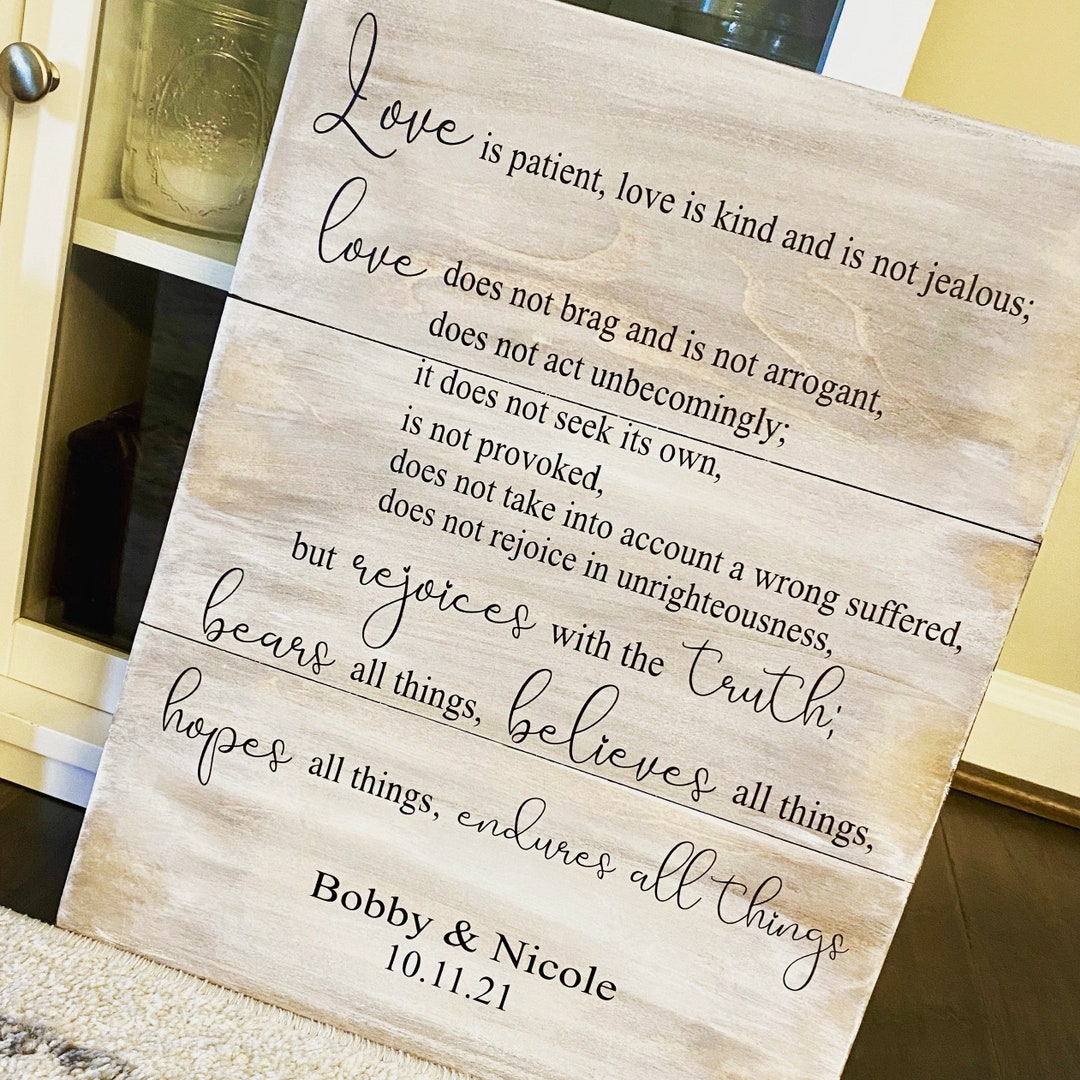 Love is patient, love is kind and is not jealous;
love does not brag and is not arrogant,
does not act unbecomingly;
it does not seek its own,
is not provoked,
does not take into account a wrong suffered,
does not rejoice in unrighteousness,
but rejoices with the truth;
bears all things, believes all things,
hopes all things, endures all things
Bobby & Nicole
10.11.21